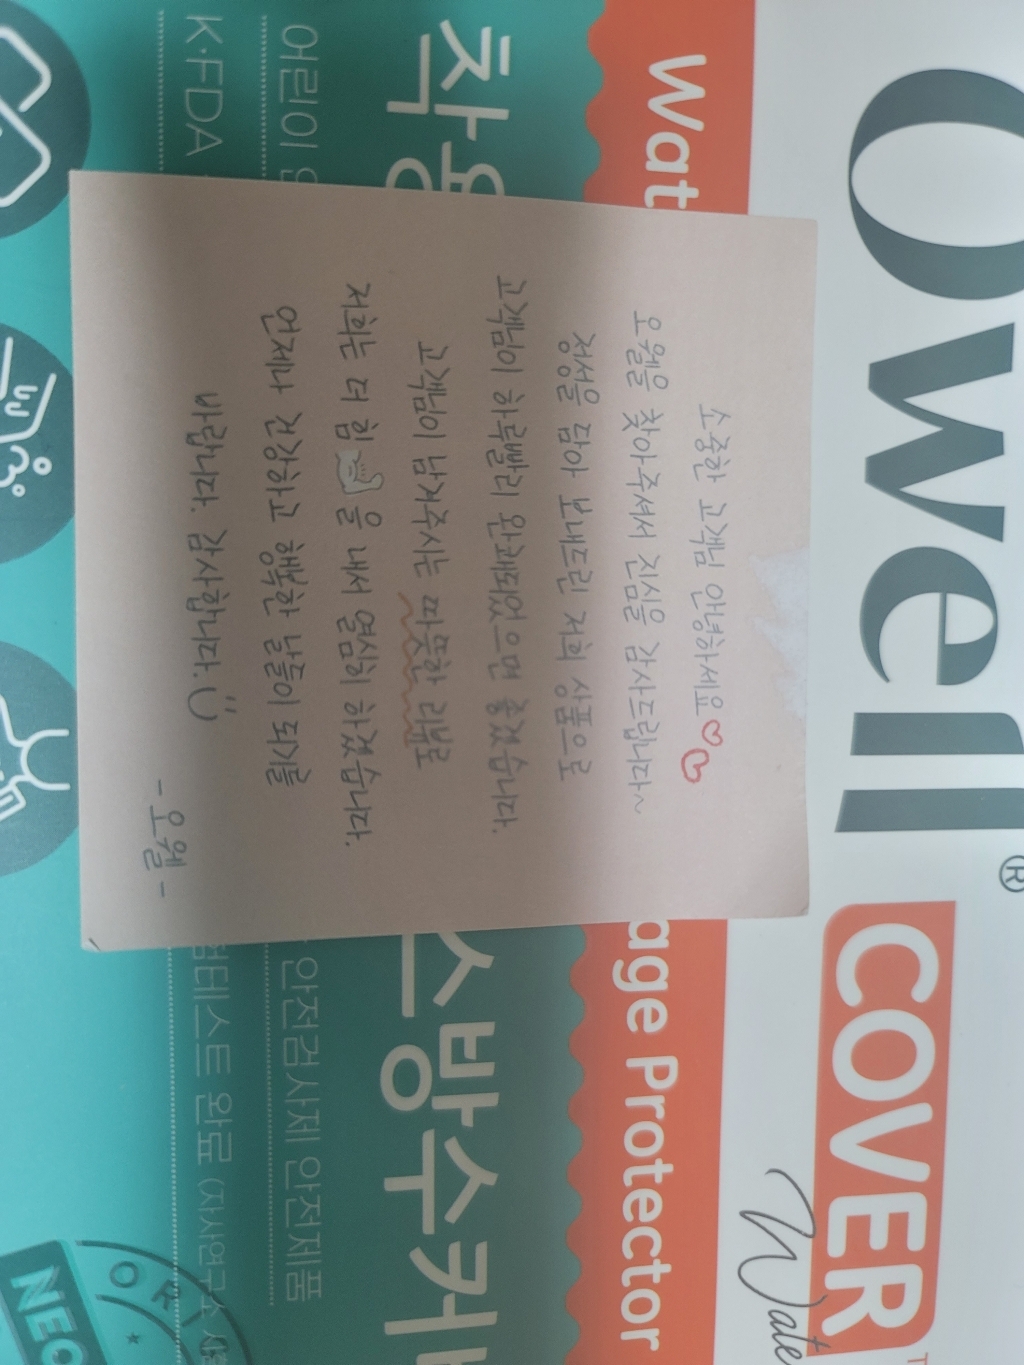 Owell®
COVER
Wate
Wat
age Protector
착용
스방수커버
어린이
안전검사제 안전제품
K·FDA
험테스트 완료 (자사연구소
ORI
NEO
소중한 고객님 안녕하세요♡♡
오웰을 찾아주셔서 진심을 감사드립니다~
정성을 담아 보내드린 저희 상품으로
고객님이 하루빨리 완쾌되었으면 좋겠습니다.
고객님이 남겨주시는 따뜻한 리뷰로
저희는 더 힘💪을 내서 열심히 하겠습니다.
언제나 건강하고 행복한 날들이 되기를
바랍니다. 감사합니다.
-오웰-